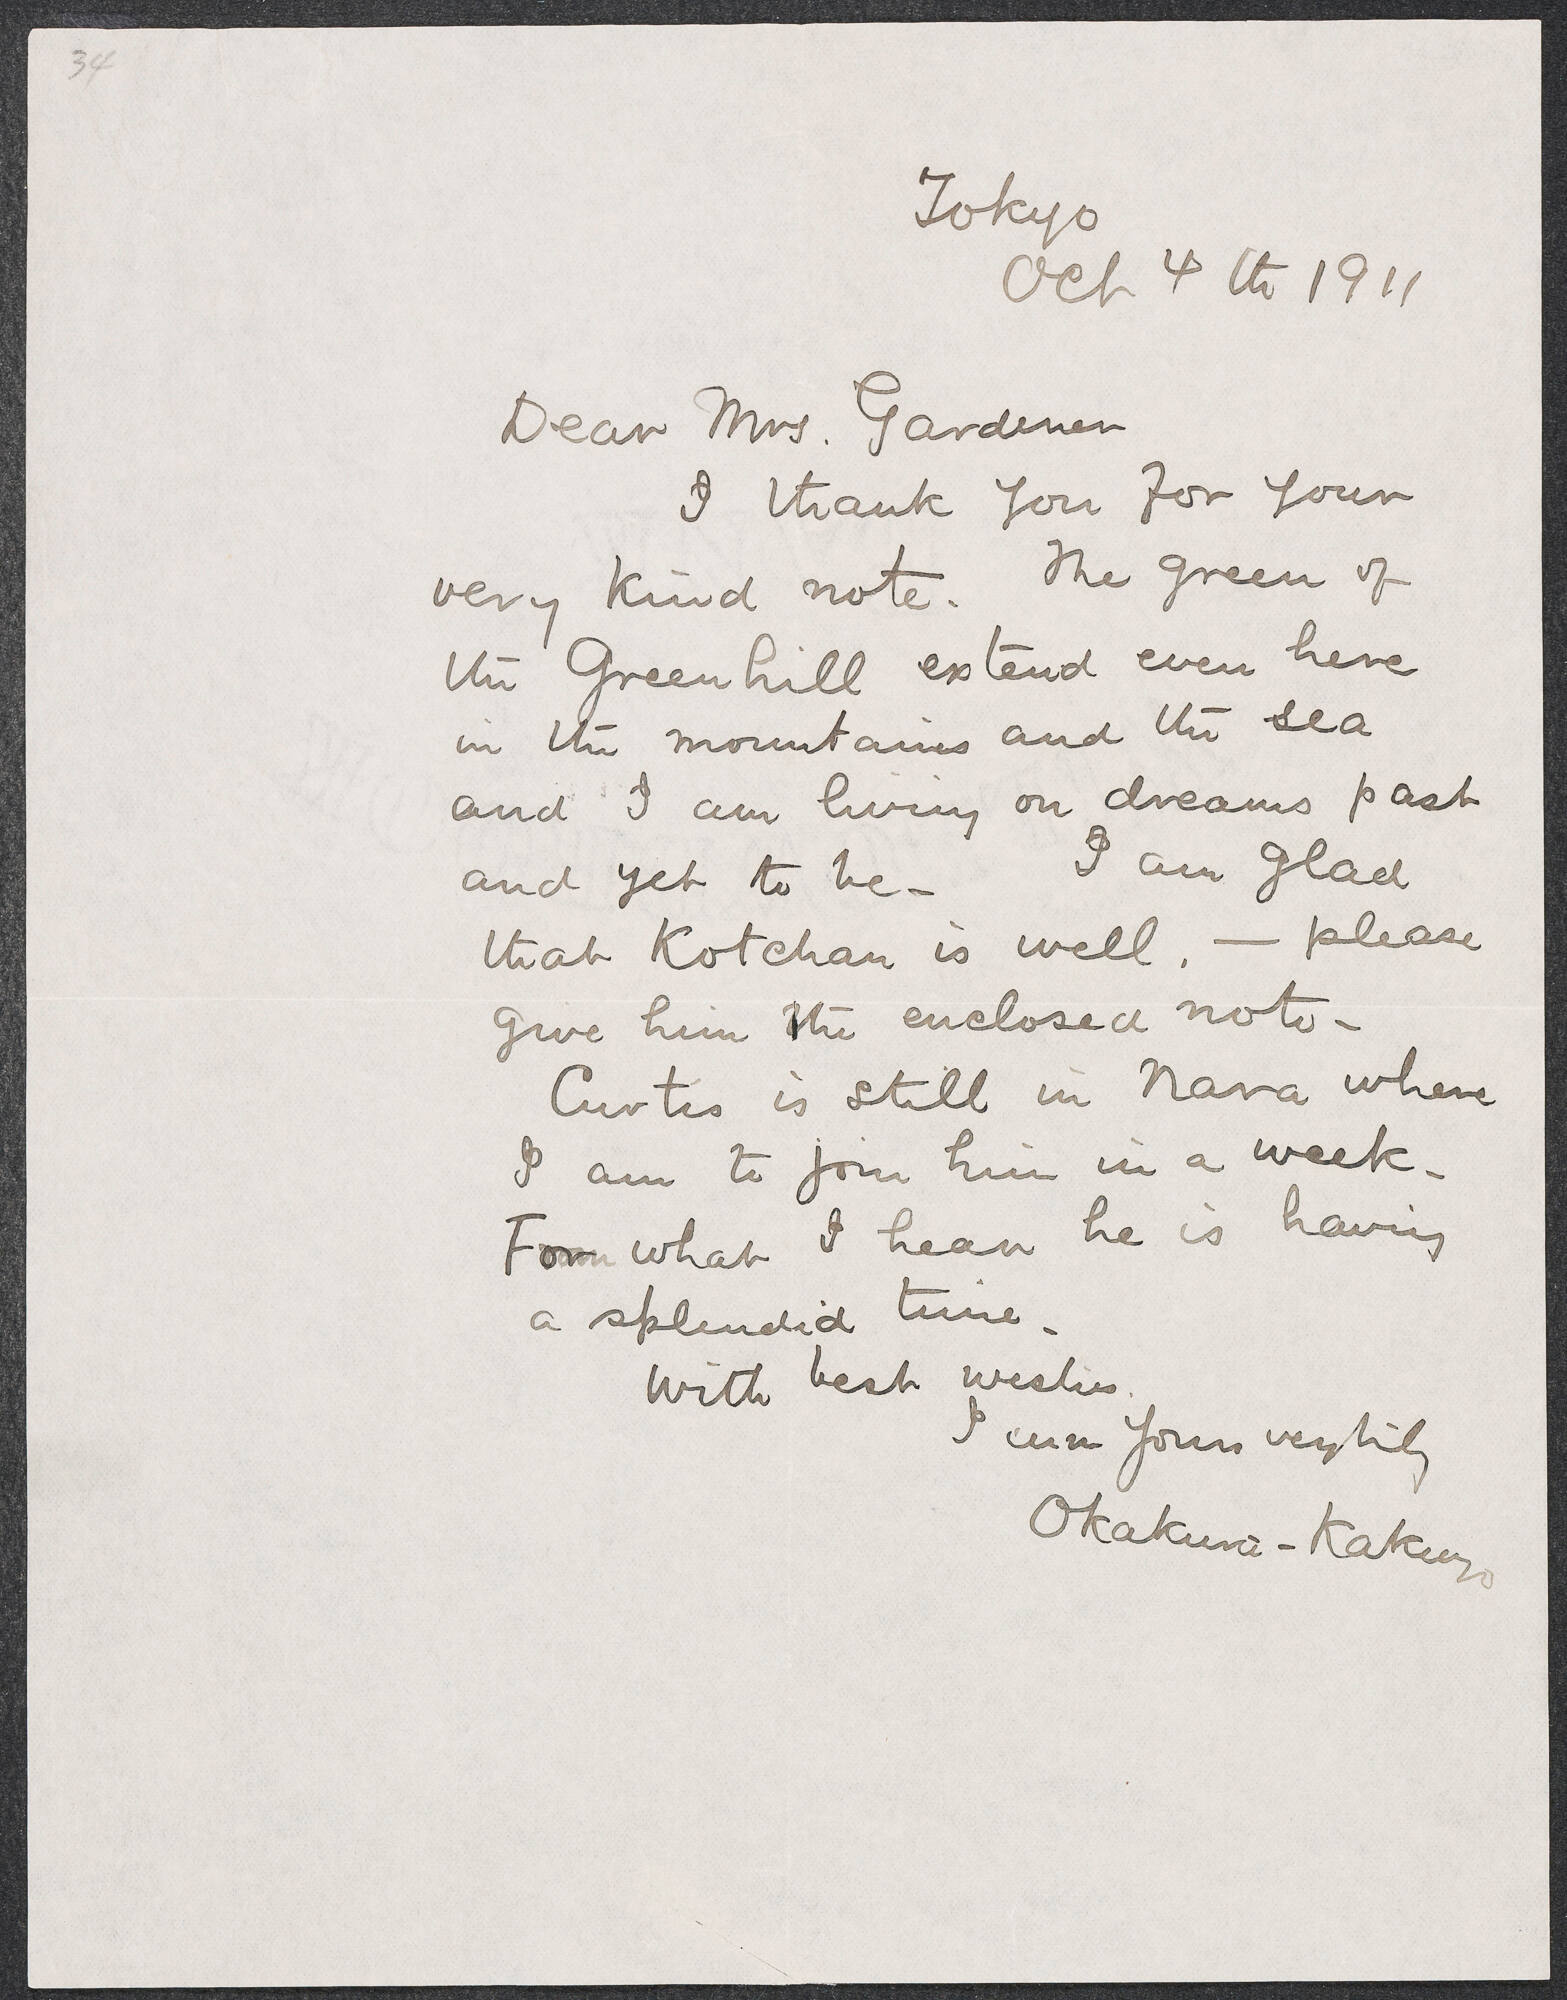 34
Tokyo
Oct 4th 1911
Dear Mrs. Gardener
I thank you for your
very kind note. The green of
the Greenhill extend even here
in the mountains and the sea
and I am living on dreams past
and yet to be-
I am glad
that Kotchan is well. — please
give him the enclosed note-
Curtis is still in Nara where
I am to join him in a week-
From what I hear he is having
a splendid time-
With best wishes.
I am yours very truly
Okakura-Kakuzo